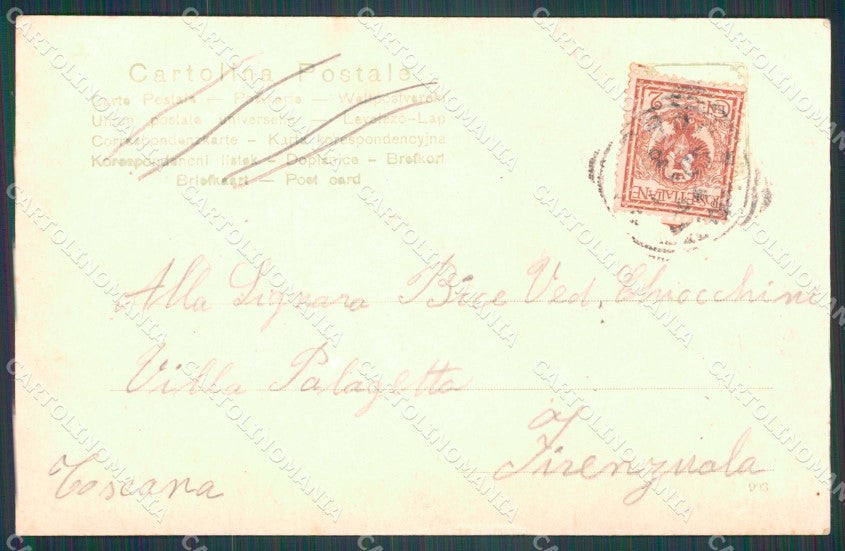 Cartolina Postale
Carte Postale — Postcarte — Weltpostverein
Union postale universelle — Levelező-Lap
Correspondenzkarte — Karta korespondencyjna
Korespondencni listek — Dopisnice — Brefkort
Briefkaart — Post card
CEN. 2
POSTE ITALIANE
Alla Signora Bice Ved. Chiocchini
Villa Palagetta
Firenzuola
Toscana
993
CARTOLINOMANIA